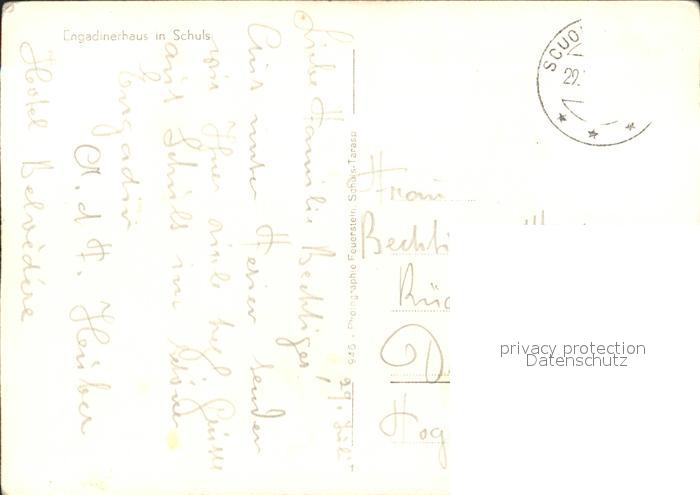 Engadinerhaus in Schuls
SCUO
29.
29. Juli
Liebe Familie Bechtiger,
Aus unter Ferien senden
wir Ihnen viele herzl. Grüsse
aus Schuls im schönen
Engadin
A. d F. Hüber
Hotel Belvédère
946 - Photographie Feuerstein, Schuls-Tarasp
Frau
Bechti
Rüc
Hog
privacy protection
Datenschutz